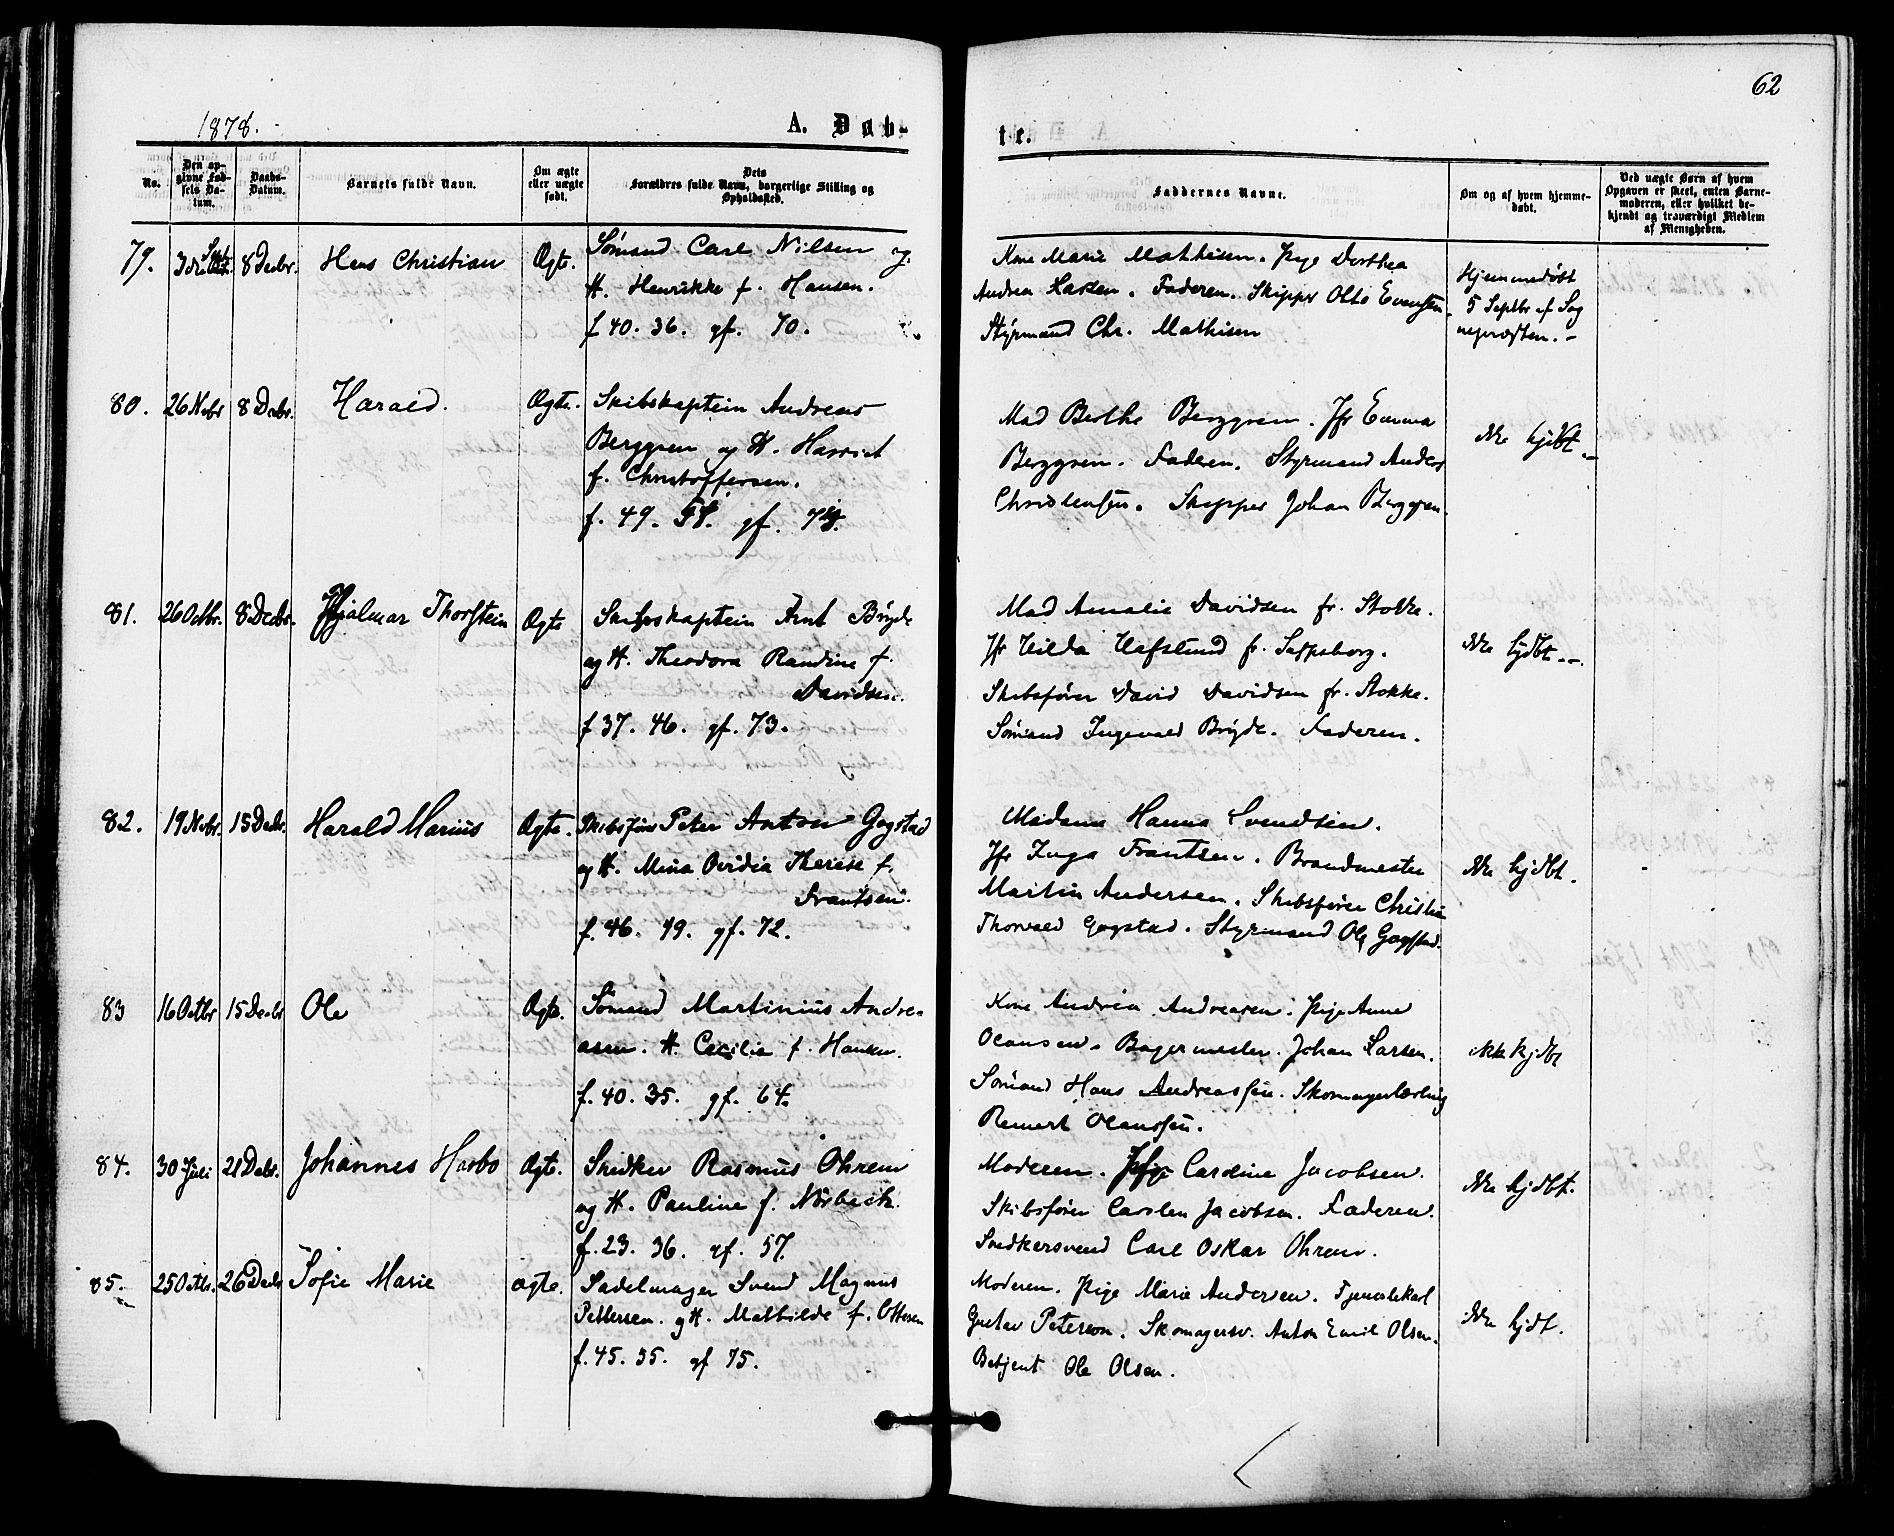 62
1878.
A. Døb-
te.
No.
Den op-
givne Fød-
sels Da-
tum.
Daabs-
Datum.
Barnets fulde Navn.
Om ægte
eller uægte
født.
Dets
Forældres fulde Navn, borgerlige Stilling og
Opholdssted.
Faddernes Navne.
Om og af hvem hjemme-
døbt.
Ved uægte Børn af hvem
Opgaven er skeet, enten Barne-
moderen, eller hvilket be-
kjendt og troværdigt Medlem
af Menigheden.
79. 8 Decbr. Hans Christian Ægte. Sømand Carl Nilsen og
H. Henrikke f. Hansen.
f 40. 36. gf. 70.
Kone Marie Mathisen. Pige Dorthea
Andrea Larsen. Faderen. Skipper Otto Evensen.
Styrmand Chr. Mathisen
Hjemmedøbt
5 Septbr af Sog
nepræsten.-
80. 26 Nvbr 8 Decbr. Harald. Ægte. Skibskaptein Andreas
Berggren og H. Harriet
f. Christoffersen.
f. 49. 58. gf.
Mad Berthe Berggren. Jfr Emma
Berggren. Faderen. Styrmand Anders
Christensen. Skipper Johan Berggren.
Ikke hjdbt.
81. 26 Octbr. 8 Decbr. Hjalmar Thorstein Ægte Skibskaptein Arnt Bryde
og H. Theodora Randine f.
Davidsen.
f 37. 46. gf. 73.
Mad Amalie Davidsen fr. Stokke.
Jfr Hilda Hafslund fr. Sarpsborg.
Skibsfører David Davidsen fr. Stokke.
Sømand Ingevald Bryde. Faderen.
Ikke hjdbt.
82. 19 Nvbr. 15 Decbr. Harald Marius Ægte. Skibsfører Peter Anton Gogstad
og H. Mina Ovidia Therese f.
Frantsen.
f. 46. 49. gf. 72.
Madame Hanna Svendsen.
Jfr Inga Frantsen. Brandmester
Martin Andersen. Skibsfører Christian
Thorvald Gogstad. Styrmand Ole Gogstad.
Ikke hjdbt.
83 16 Octbr 15 Decbr Ole Ægte. Sømand Martinius Andre-
asen. H. Cecilie f. Hansen.
f. 40. 35. gf. 64.
Kone Andrea Andreasen. Pige Anne
Olausen. Bagermester. Johan Larsen.
Sømand Hans Andreassen. Skomagerlærling
Reinert Olaussen.
ikke hjdbt
84. 30 Juli 21 Decbr. Johannes Harbo Ægte. Snedker Rasmus Ohren
og H. Pauline f. Norbeck.
f. 23. 36. gf. 57.
Moderen. Pige Caroline Jacobsen.
Skibsfører Carsten Jacobsen. Faderen.
Snedkersvend Carl Oskar Ohren.
Ikke hjdbt.
85. 25 Octbr. 26 Decbr Sofie Marie Ægte. Sadelmager Svend Magnus
Pettersen. og H. Mathilde f. Ottesen
f. 45. 55. gf 75.
Moderen. Pige Marie Andersen. Tjenestekarl
Gustav Peterson. Skomagersv. Anton Emil Olsen.
Betjent Ole Olsen.
Ikke hjdt.